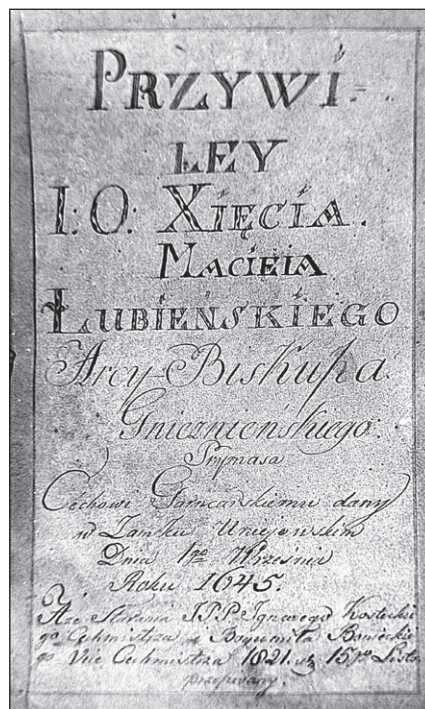 PRZYWI-
LEY
I: O: XIĘCIA
MACIEIA
ŁUBIEŃSKIEGO
Arcy-Biskupa
Gnieznieńskiego:
Prymasa
Cechowi Garncarskiemu dany
w Zamku Uniejowskim
Dnia 1go Września
Roku 1645.
Ignacego Kosteckie
go Cechmistrza Bogumiła
go Vice Cechmistrza 1821. 15go Listo.
przepisany.